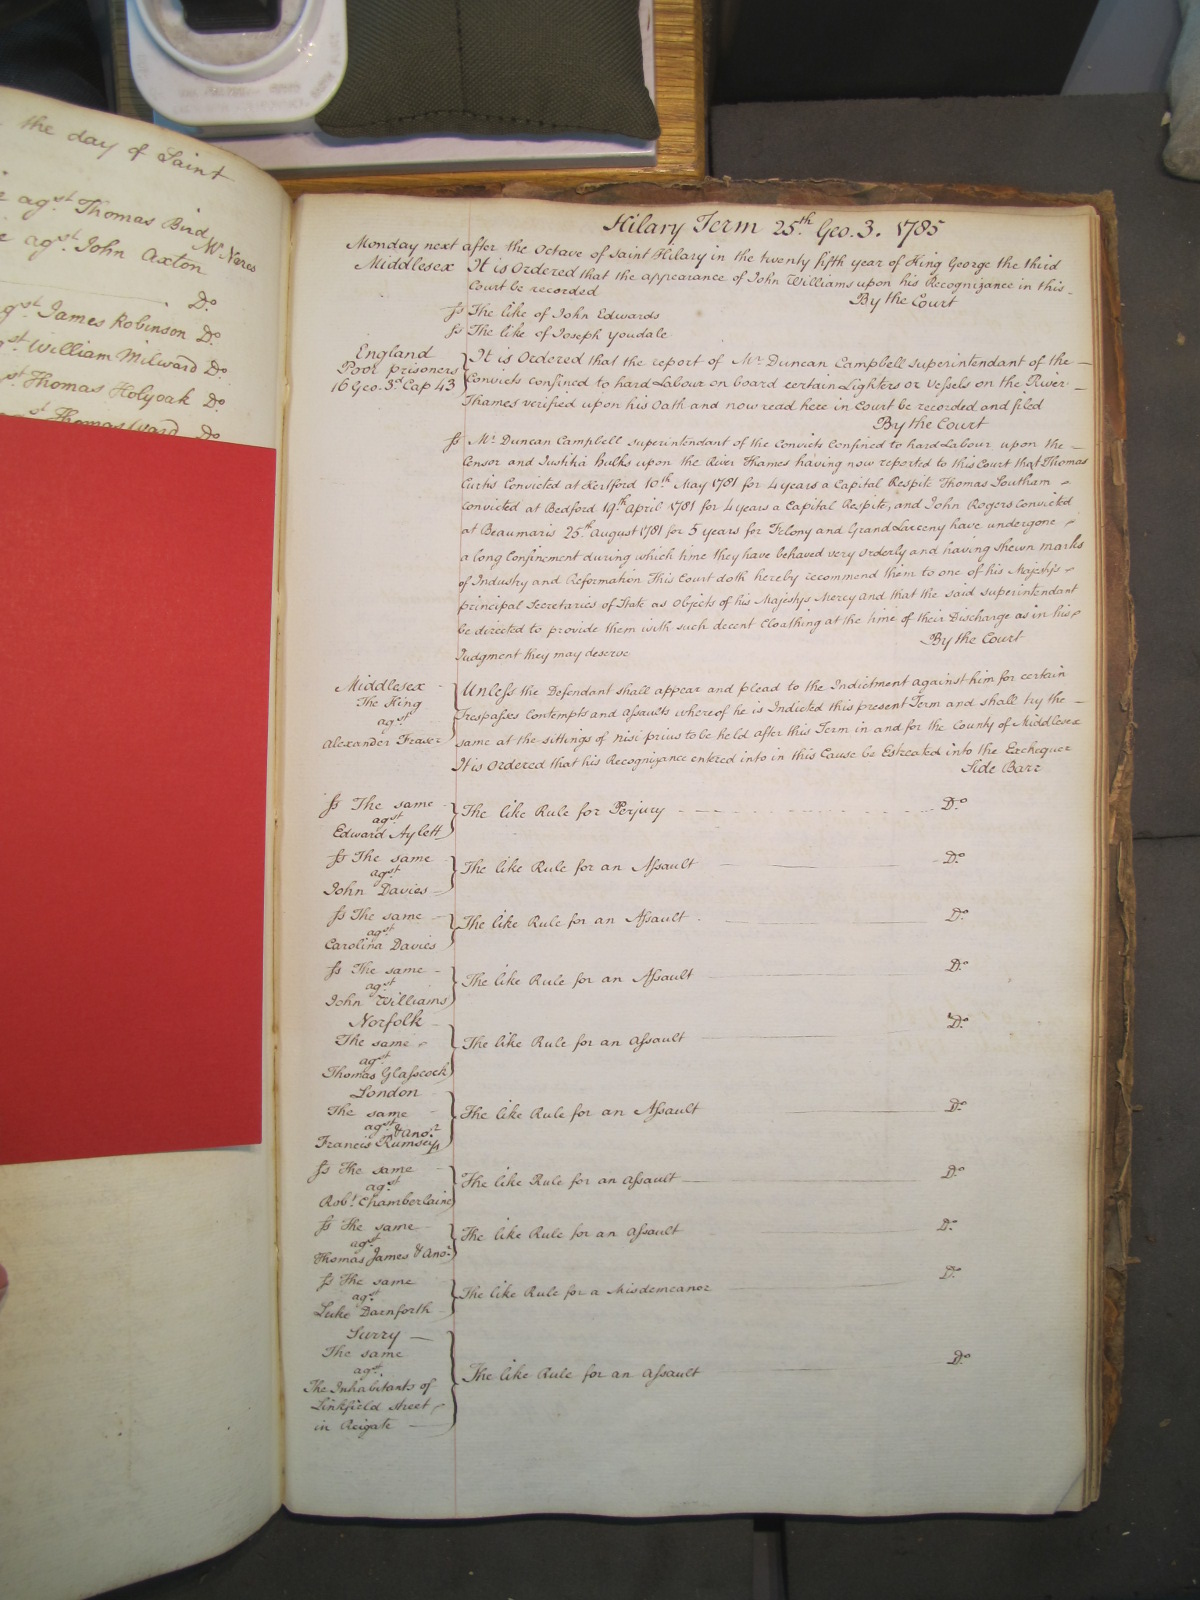 the day of Saint
agst Thomas Bird
Mr Nares
agst John Axton
Do
gst James Robinson Do
st William Milward Do
st Thomas Holyoak Do
st Thomas Ward Do
Hilary Term 25th Geo. 3. 1785
Monday next after the Octave of Saint Hilary in the twenty fifth year of King George the third
Middlesex It is Ordered that the appearance of John Williams upon his Recognizance in this
Court be recorded
By the Court
ſs The like of John Edwards
ſs The like of Joseph Youdale
England
Poor prisoners
16 Geo. 3d Cap 43
It is Ordered that the report of Mr Duncan Campbell Superintendant of the
Convicts confined to hard Labour on board certain Lighters or Veſsels on the River
Thames verified upon his Oath and now read here in Court be recorded and filed
By the Court
ſs Mr Duncan Campbell Superintendant of the Convicts Confined to hard Labour upon the
Censor and Justitia Hulks upon the River Thames having now reported to this Court that Thomas
Curtis Convicted at Hertford 10th May 1781 for 4 years a Capital Respite Thomas Southam
convicted at Bedford 19th April 1781 for 4 years a Capital Respite, and John Rogers Convicted
at Beaumaris 25th August 1781 for 5 years for Felony and Grand Larceny have undergone
a long Confinement during which time they have behaved very orderly and having shewn marks
of Industry and Reformation This Court doth hereby recommend them to one of his Majestys
principal Secretaries of State as Objects of his Majestys Mercy and that the said superintendant
be directed to provide them with such decent Cloathing at the time of their Discharge as in his
Judgment they may deserve
By the Court
Middlesex
The King
agst
Alexander Fraser
Unleſs the Defendant shall appear and plead to the Indictment against him for certain
Trespaſses Contempts and Aſsaults whereof he is Indicted this present Term and shall try the
same at the sittings of Nisi prius to be held after this Term in and for the County of Middlesex
It is Ordered that his Recognizance entered into in this Cause be Estreated into the Exchequer
Side Barr
ſs The same
agst
Edward Aylett
The like Rule for Perjury Do
ſs The same
agst
John Davies
The like Rule for an Aſsault Do
ſs The same
agst
Carolina Davies
The like Rule for an Aſsault Do
ſs The same
agst
John Williams
The like Rule for an Aſsault Do
Norfolk
The same
agst
Thomas Glaſscock
The like Rule for an Aſsault Do
London
The same
agst
Francis Rumsey & Anor
The like Rule for an Aſsault Do
ſs The same
agst
Robt Chamberlaine
The like Rule for an Aſsault Do
ſs The same
agst
Thomas James & Anor
The like Rule for an Aſsault Do
ſs The same
agst
Luke Darnforth
The like Rule for a Misdemeanor Do
Surry
The same
agst
The Inhabitants of
Linkfield street
in Reigate
The like Rule for an Aſsault Do